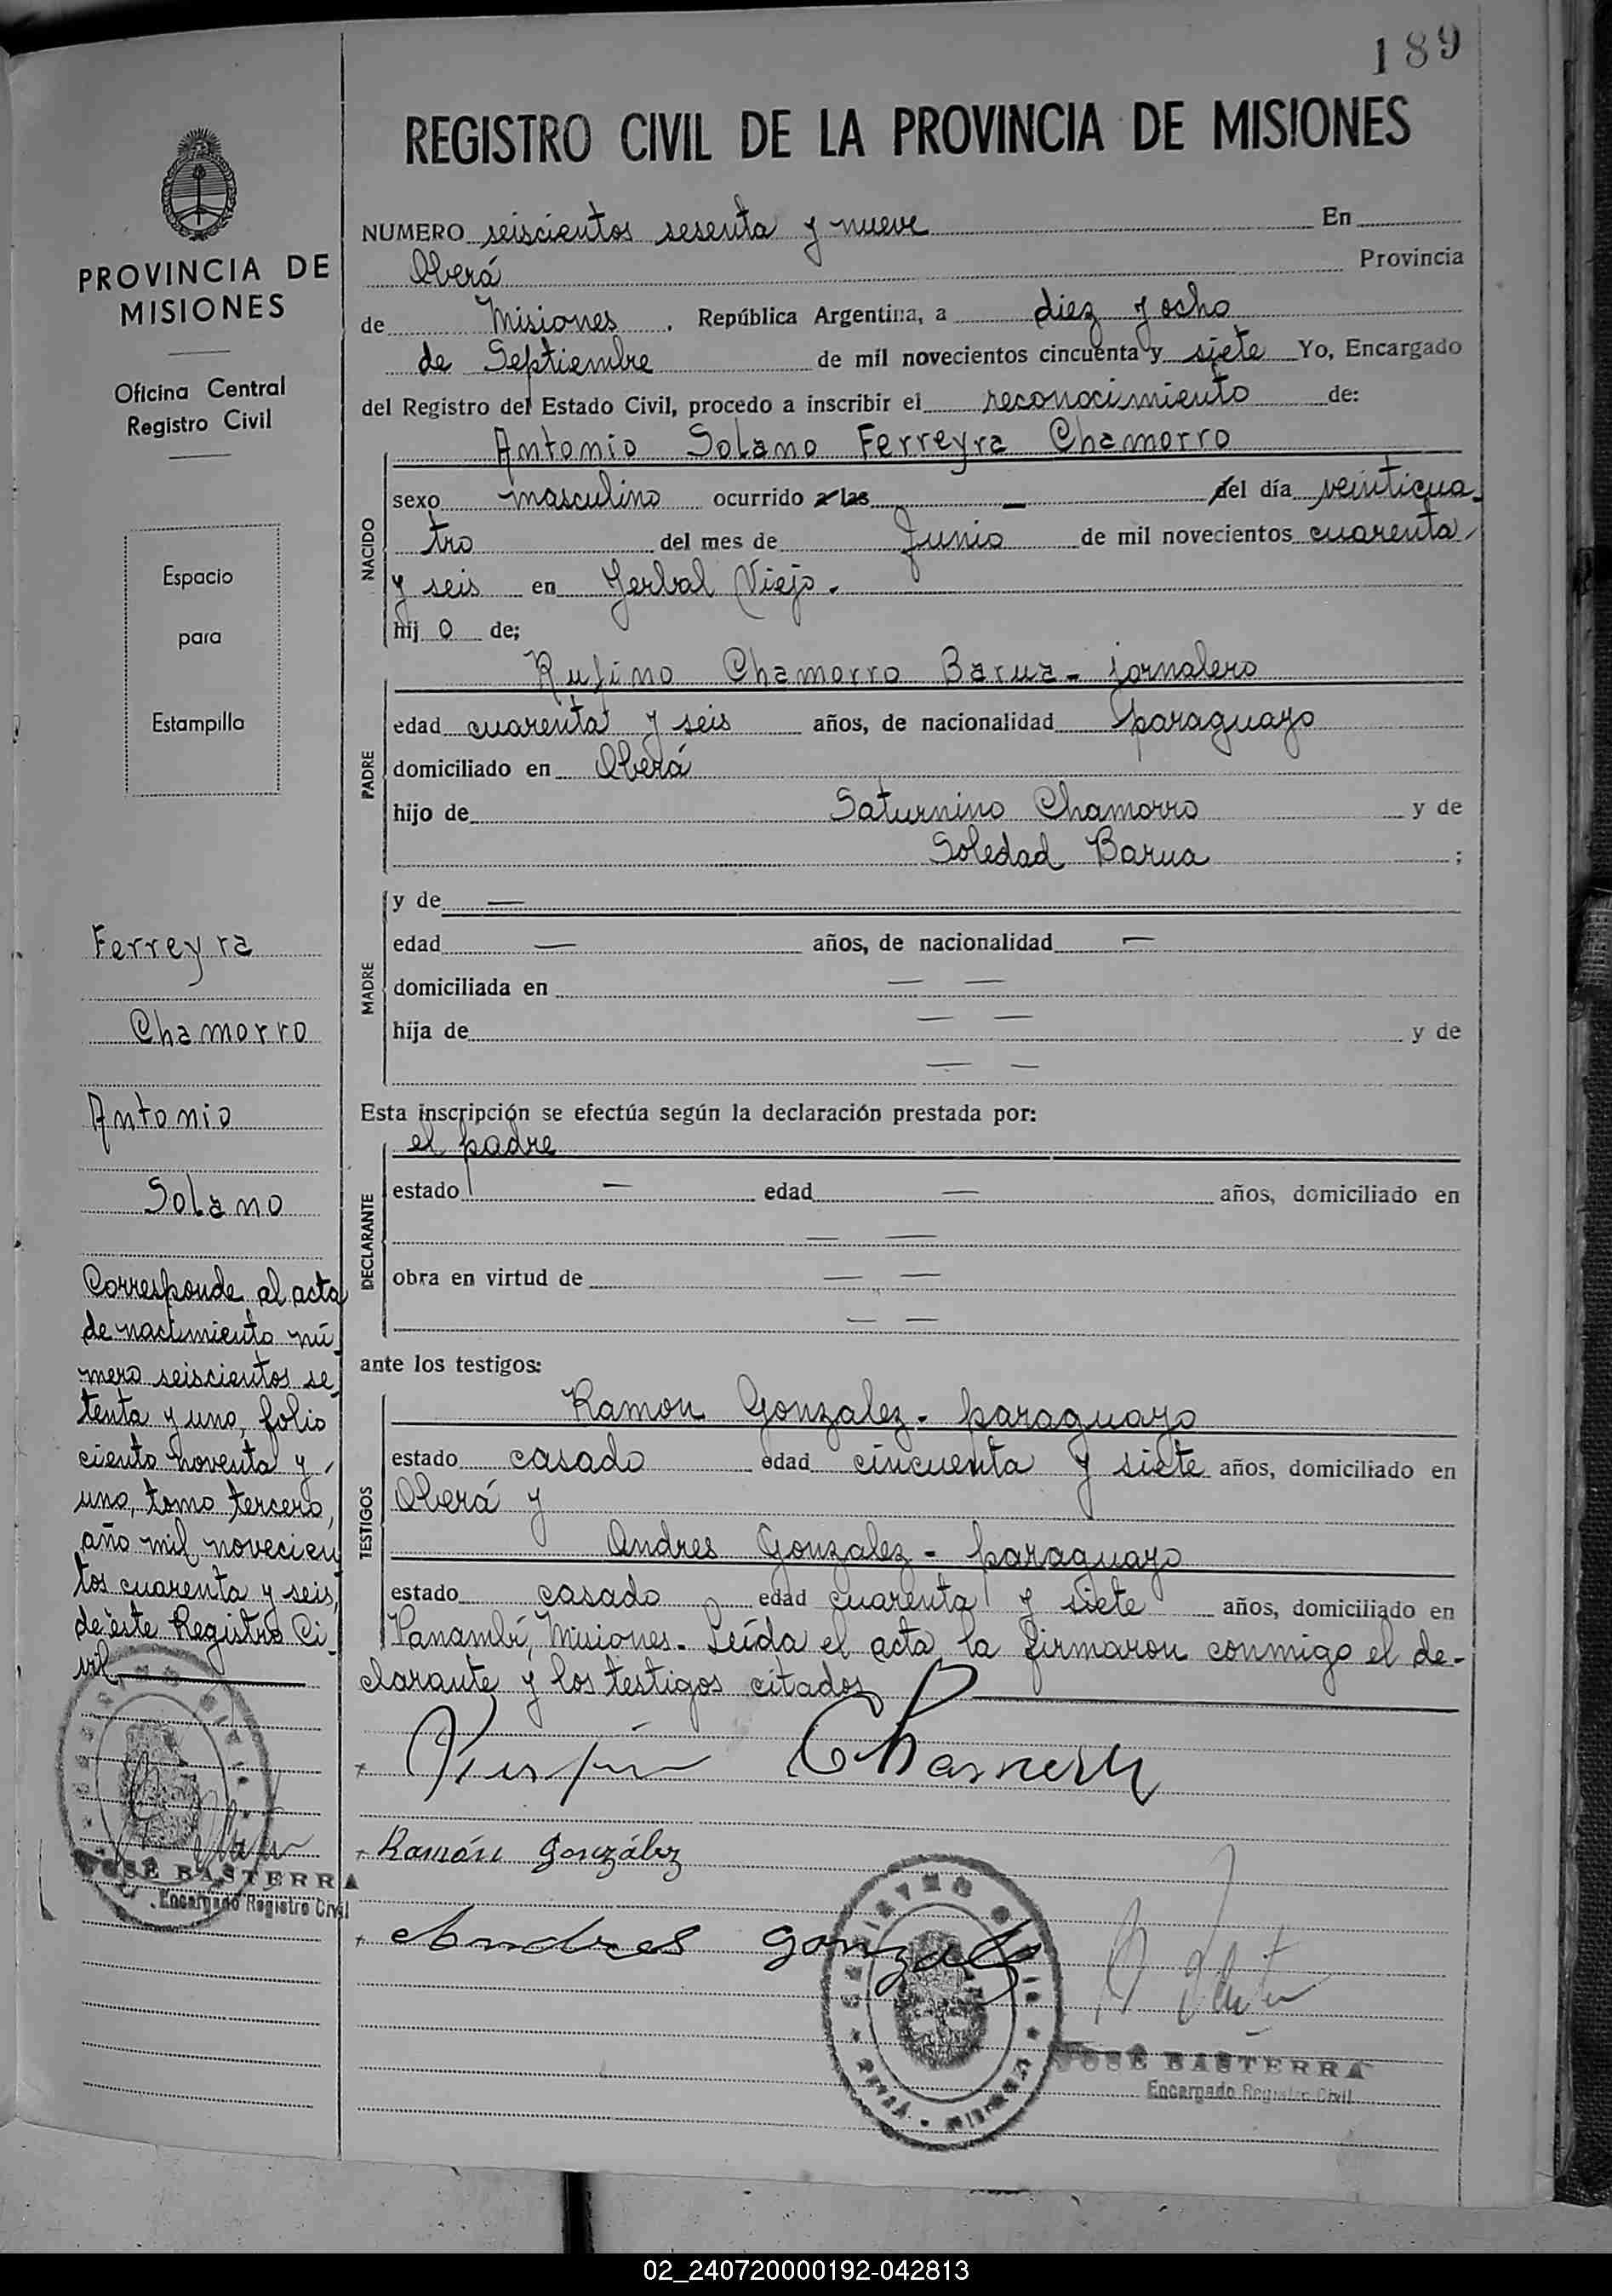 189
REGISTRO CIVIL DE LA PROVINCIA DE MISIONES
PROVINCIA DE
MISIONES
Oficina Central
Registro Civil
Espacio
para
Estampilla
Ferreyra
Chamorro
Antonio
Solano
Corresponde al acta
de nacimiento nú
mero seiscientos se
tenta y uno, folio
ciento noventa y
uno, tomo tercero,
año mil novecien
tos cuarenta y seis,
de éste Registro Ci
vil
JOSÉ BASTERRA
Encargado Registro Civil
NUMERO seiscientos sesenta y nueve En
Oberá Provincia
de Misiones, República Argentina, a diez y ocho
de Septiembre de mil novecientos cincuenta y siete Yo, Encargado
del Registro del Estado Civil, procedo a inscribir el reconocimiento de:
Antonio Solano Ferreyra Chamorro
NACIDO
sexo masculino ocurrido a las — del día veinticua-
tro del mes de Junio de mil novecientos cuarenta
y seis en Yerbal Viejo.
hij o de;
Rufino Chamorro Barua - jornalero
PADRE
edad cuarenta y seis años, de nacionalidad paraguayo
domiciliado en Oberá
hijo de Saturnino Chamorro y de
Soledad Barua ;
MADRE
y de —
edad — años, de nacionalidad —
domiciliada en — —
hija de — — y de
— —
Esta inscripción se efectúa según la declaración prestada por:
el padre
DECLARANTE
estado — edad — años, domiciliado en
— —
obra en virtud de — —
— —
ante los testigos:
Ramon Gonzalez - paraguayo
TESTIGOS
estado casado edad cincuenta y siete años, domiciliado en
Oberá y
Andres Gonzalez - paraguayo
estado casado edad cuarenta y siete años, domiciliado en
Panambí, Misiones. Leída el acta la firmaron conmigo el de-
clarante y los testigos citados
Ramón González
Andres Gonzalez
JOSÉ BASTERRA
Encargado Registro Civil
02_240720000192-042813